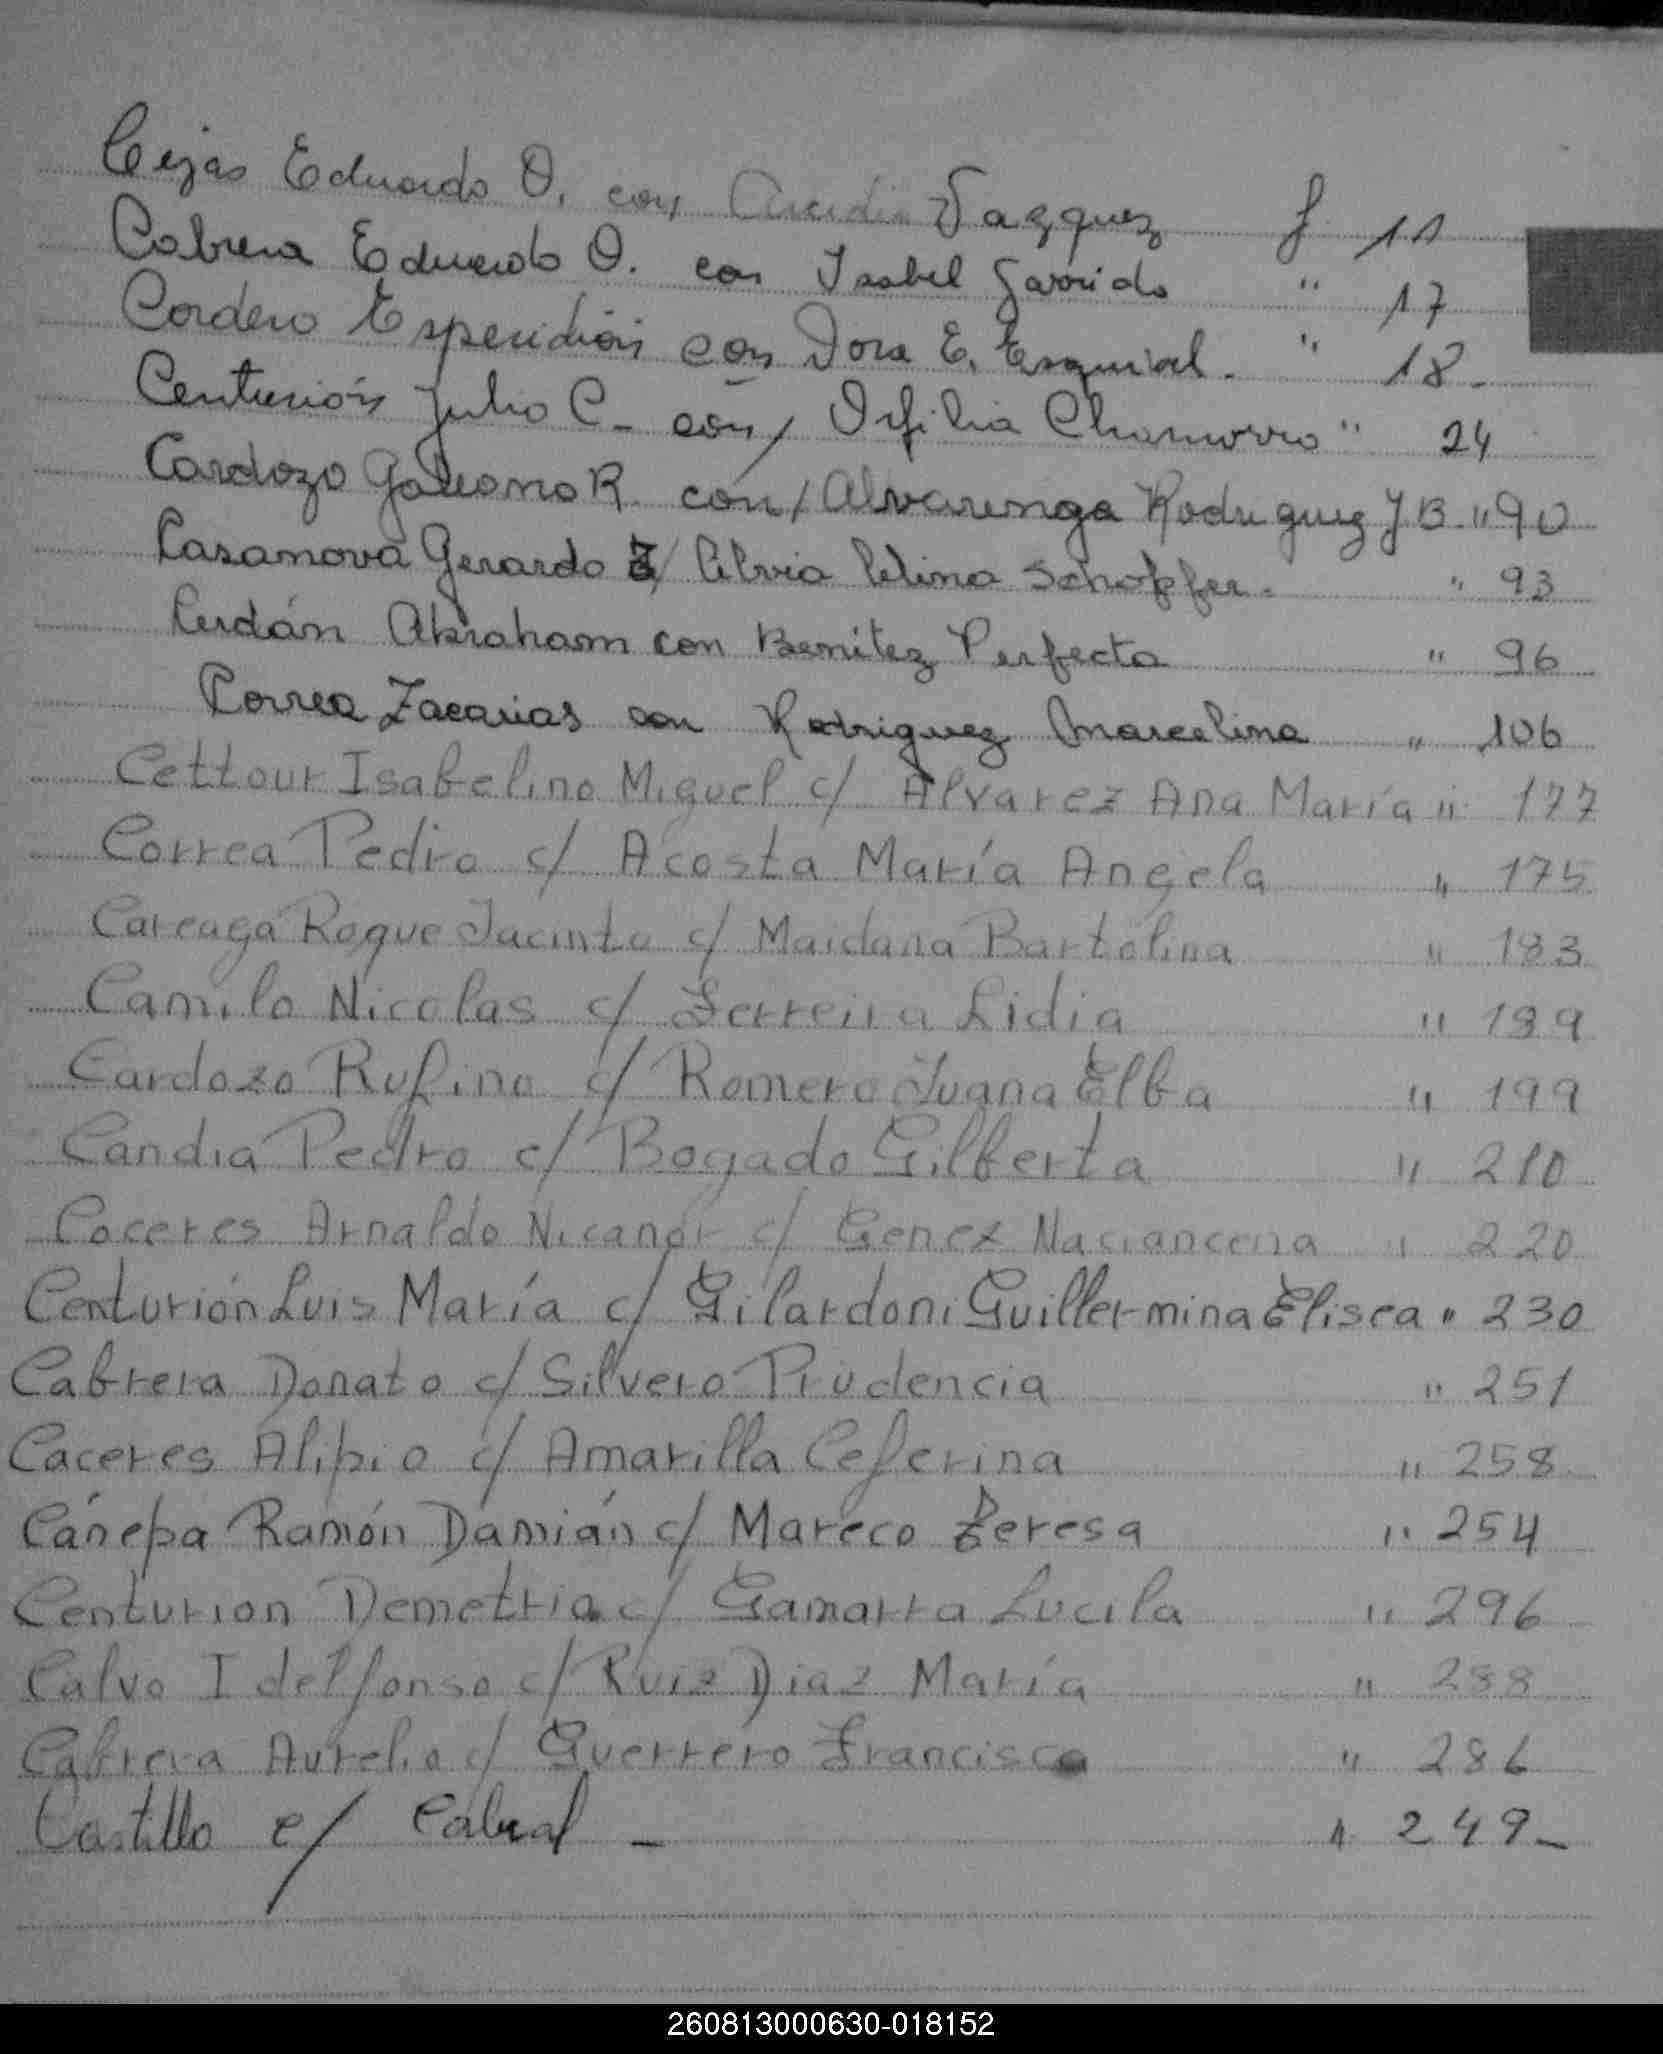 Cejas Eduardo O. con Vazquez f 11
Cabrera Eduardo O. con Isabel Garrido " 17
Cordero Esperidión con Dora E. Esquivel. " 18-
Centurión Julio C- con/ Chamorro " 24
Cardozo R con/ Alvarenga Rodriguez J.B. " 90
Casanova Gerardo / Celina Schopfer. " 93
Cerdán Abraham con Benítez Perfecta " 96
Correa Zacarias con Rodriguez Marcelina " 106
Cettour Isabelino Miguel c/ Alvarez Ana María " 177
Correa Pedro c/ Acosta María Angela " 175
Careaga Roque Jacinto c/ Maidana Bartolina " 183
Camilo Nicolas c/ Ferreira Lidia " 189
Cardozo Rufino c/ Romero Juana Elba " 199
Candia Pedro c/ Bogado Gilberta " 210
Coceres Arnaldo Nicanor c/ Genez Naciancena " 220
Centurión Luis María c/ Gilardoni Guillermina Elisea " 230
Cabrera Donato c/ Silvero Prudencia " 251
Caceres Alipio c/ Amarilla Ceferina " 258
Cánepa Ramón Damián c/ Mareco Teresa " 254
Centurion Demetrio c/ Gamarra Lucila " 296
Calvo Idelfonso c/ Ruiz Diaz María " 288
Cabrera Aurelio c/ Guerrero Francisca " 286
Castillo c/ Cabral - " 249-
260813000630-018152